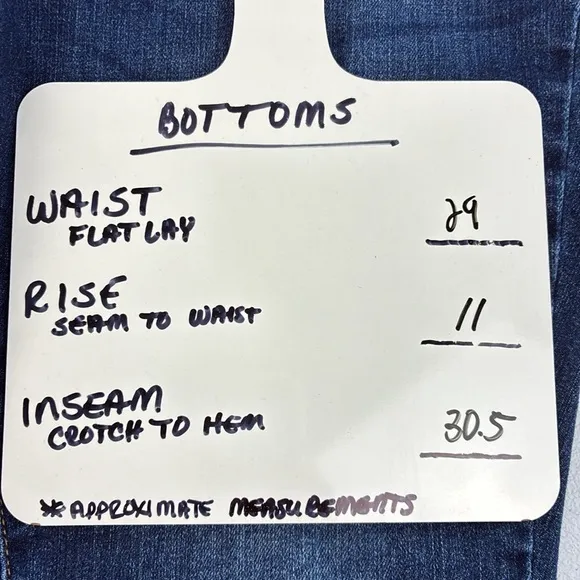 BOTTOMS
WAIST 29
FLAT LAY
RISE 11
SEAM TO WAIST
INSEAM 30.5
CROTCH TO HEM
*APPROXIMATE MEASUREMENTS